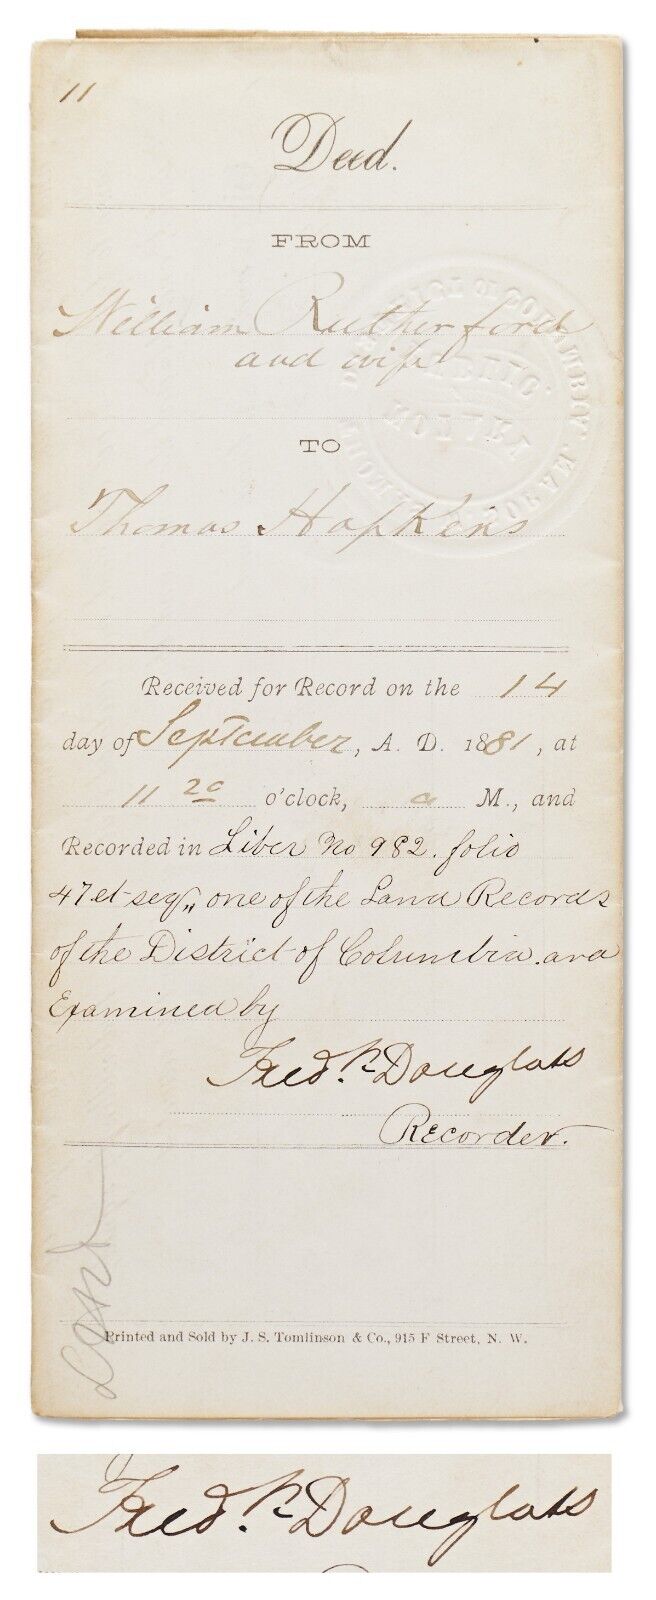 11
Deed.
FROM
William Rutherford
and wife
TO
Thomas Hopkins
Received for Record on the 14
day of September, A. D. 1881, at
11 20 o'clock, a M., and
Recorded in Liber No 982. folio
47 et seq, one of the Land Records
of the District of Columbia. and
Examined by
Fredk Douglass
Recorder.
Printed and Sold by J. S. Tomlinson & Co., 915 F Street, N. W.
Fredk Douglass